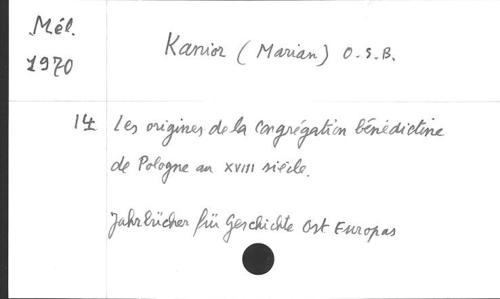 Mél.
1970
Kanior (Marian) O.S.B.
14 Les origines de la Congrégation bénédictine
de Pologne au XVIII siècle.
Jahrbücher für Geschichte Ost Europas